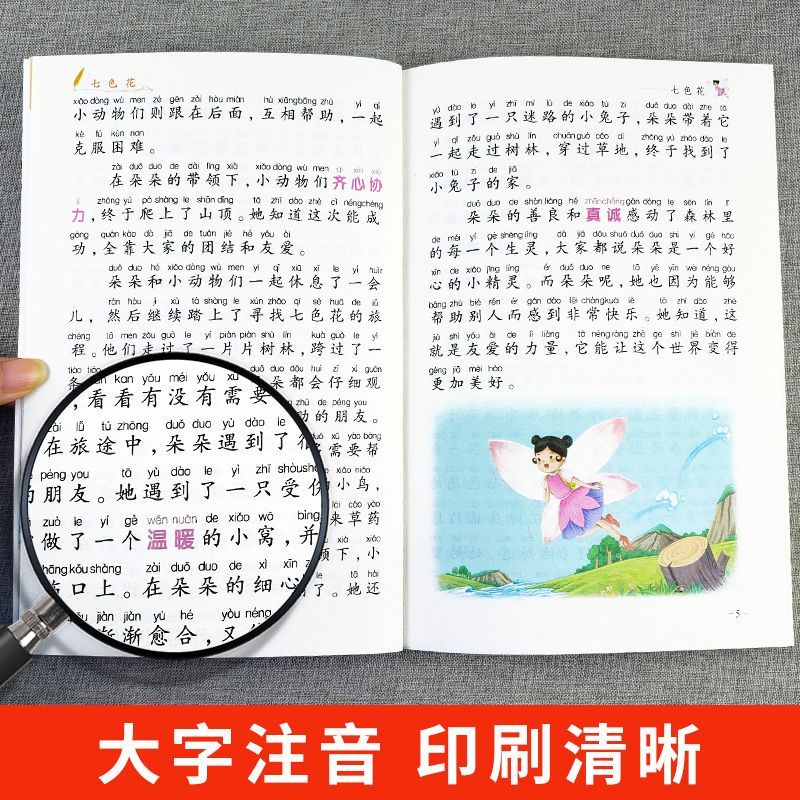 七色花
xiǎo dòng wù men zé gēn zài hòu miàn hù xiāng bāng zhù yì qǐ
小动物们则跟在后面，互相帮助，一起
kè fú kùn nan
克服困难。
zài duǒ duo de dài lǐng xià xiǎo dòng wù men qí xīn xié
在朵朵的带领下，小动物们齐心协
lì zhōng yú pá shàng le shān dǐng tā zhī dào zhè cì néng chéng
力，终于爬上了山顶。她知道这次能成
gōng quán kào dà jiā de tuán jié hé yǒu ài
功，全靠大家的团结和友爱。
duǒ duo hé xiǎo dòng wù men yì qǐ xiū xi le yí huìr
朵朵和小动物们一起休息了一会
rán hòu jì xù tà shàng le xún zhǎo qī sè huā de lǚ
儿，然后继续踏上了寻找七色花的旅
chéng tā men zǒu guò le yí piàn piàn shù lín kuà guò le yì
程。他们走过了一片片树林，跨过了一
朵都会仔细观
kan kàn yǒu méi yǒu xū
，看看有没有需要
动的朋友。
zài lǚ tú zhōng duǒ duo yù dào le
在旅途中，朵朵遇到了
需要帮
péng you tā yù dào le yì zhī shòu shāng
朋友。她遇到了一只受伤
小鸟，
zuò le yí gè wēn nuǎn de xiǎo wō bìng
做了一个温暖的小窝，并
来草药
kǒu shàng zài duǒ duo de xì xīn
口上。在朵朵的细心
了。她还
jiàn jiàn yù hé yòu néng
渐渐愈合，又
七色花
yù dào le yì zhī mí lù de xiǎo tù zi duǒ duo dài zhe tā
遇到了一只迷路的小兔子，朵朵带着它
yì qǐ zǒu guò shù lín chuān guò cǎo dì zhōng yú zhǎo dào le
一起走过树林，穿过草地，终于找到了
xiǎo tù zi de jiā
小兔子的家。
duǒ duo de shàn liáng hé zhēn chéng gǎn dòng le sēn lín lǐ
朵朵的善良和真诚感动了森林里
de měi yí gè shēng líng dà jiā dōu shuō duǒ duo shì yí gè hǎo
的每一个生灵，大家都说朵朵是一个好
xīn de xiǎo jīng líng ér duǒ duo ne tā yě yīn wèi néng gòu
心的小精灵。而朵朵呢，她也因为能够
bāng zhù bié rén ér gǎn dào fēi cháng kuài lè tā zhī dào zhè
帮助别人而感到非常快乐。她知道，这
jiù shì yǒu ài de lì liàng tā néng ràng zhè ge shì jiè biàn de
就是友爱的力量，它能让这个世界变得
gèng jiā měi hǎo
更加美好。
-5-
大字注音 印刷清晰